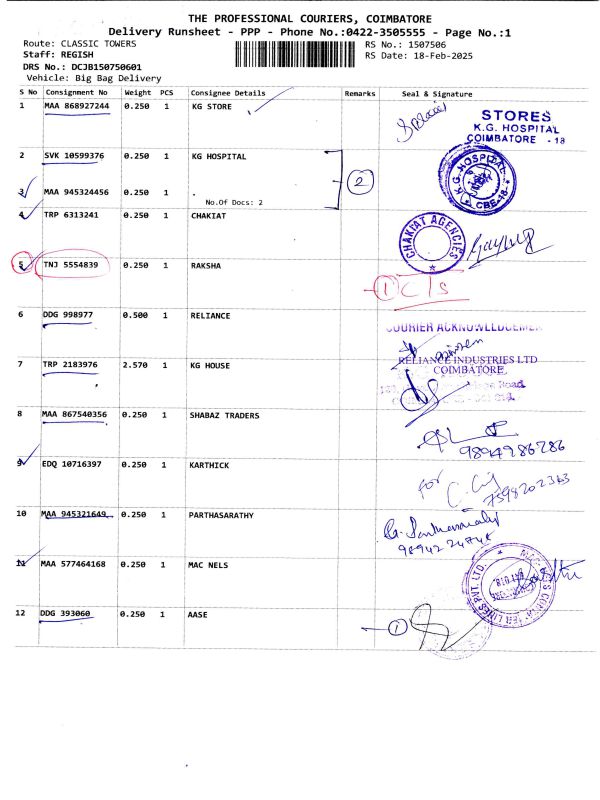 THE PROFESSIONAL COURIERS, COIMBATORE
Delivery Runsheet - PPP - Phone No.:0422-3505555 - Page No.:1
Route: CLASSIC TOWERS
RS No.: 1507506
Staff: REGISH
RS Date: 18-Feb-2025
DRS No.: DCJB150750601
Vehicle: Big Bag Delivery
S No Consignment No Weight PCS Consignee Details Remarks Seal & Signature
1 MAA 868927244 0.250 1 KG STORE
STORES
K.G. HOSPITAL
COIMBATORE - 18
2 SVK 10599376 0.250 1 KG HOSPITAL
2
K.G. HOSPITAL
CBE-18
3 MAA 945324456 0.250 1 .
No.Of Docs: 2
4 TRP 6313241 0.250 1 CHAKIAT
CHAKIAT AGENCIES
5 TNJ 5554839 0.250 1 RAKSHA
1 C/S
6 DDG 998977 0.500 1 RELIANCE
COURIER ACKNOWLEDGEMEN
RELIANCE INDUSTRIES LTD
COIMBATORE,
Road
7 TRP 2183976 2.570 1 KG HOUSE
8 MAA 867540356 0.250 1 SHABAZ TRADERS
9894986286
9 EDQ 10716397 0.250 1 KARTHICK
for
7598202363
10 MAA 945321649 0.250 1 PARTHASARATHY
98942 24848
11 MAA 577464168 0.250 1 MAC NELS
LINES PVT. LTD.
12 DDG 393060 0.250 1 AASE
1